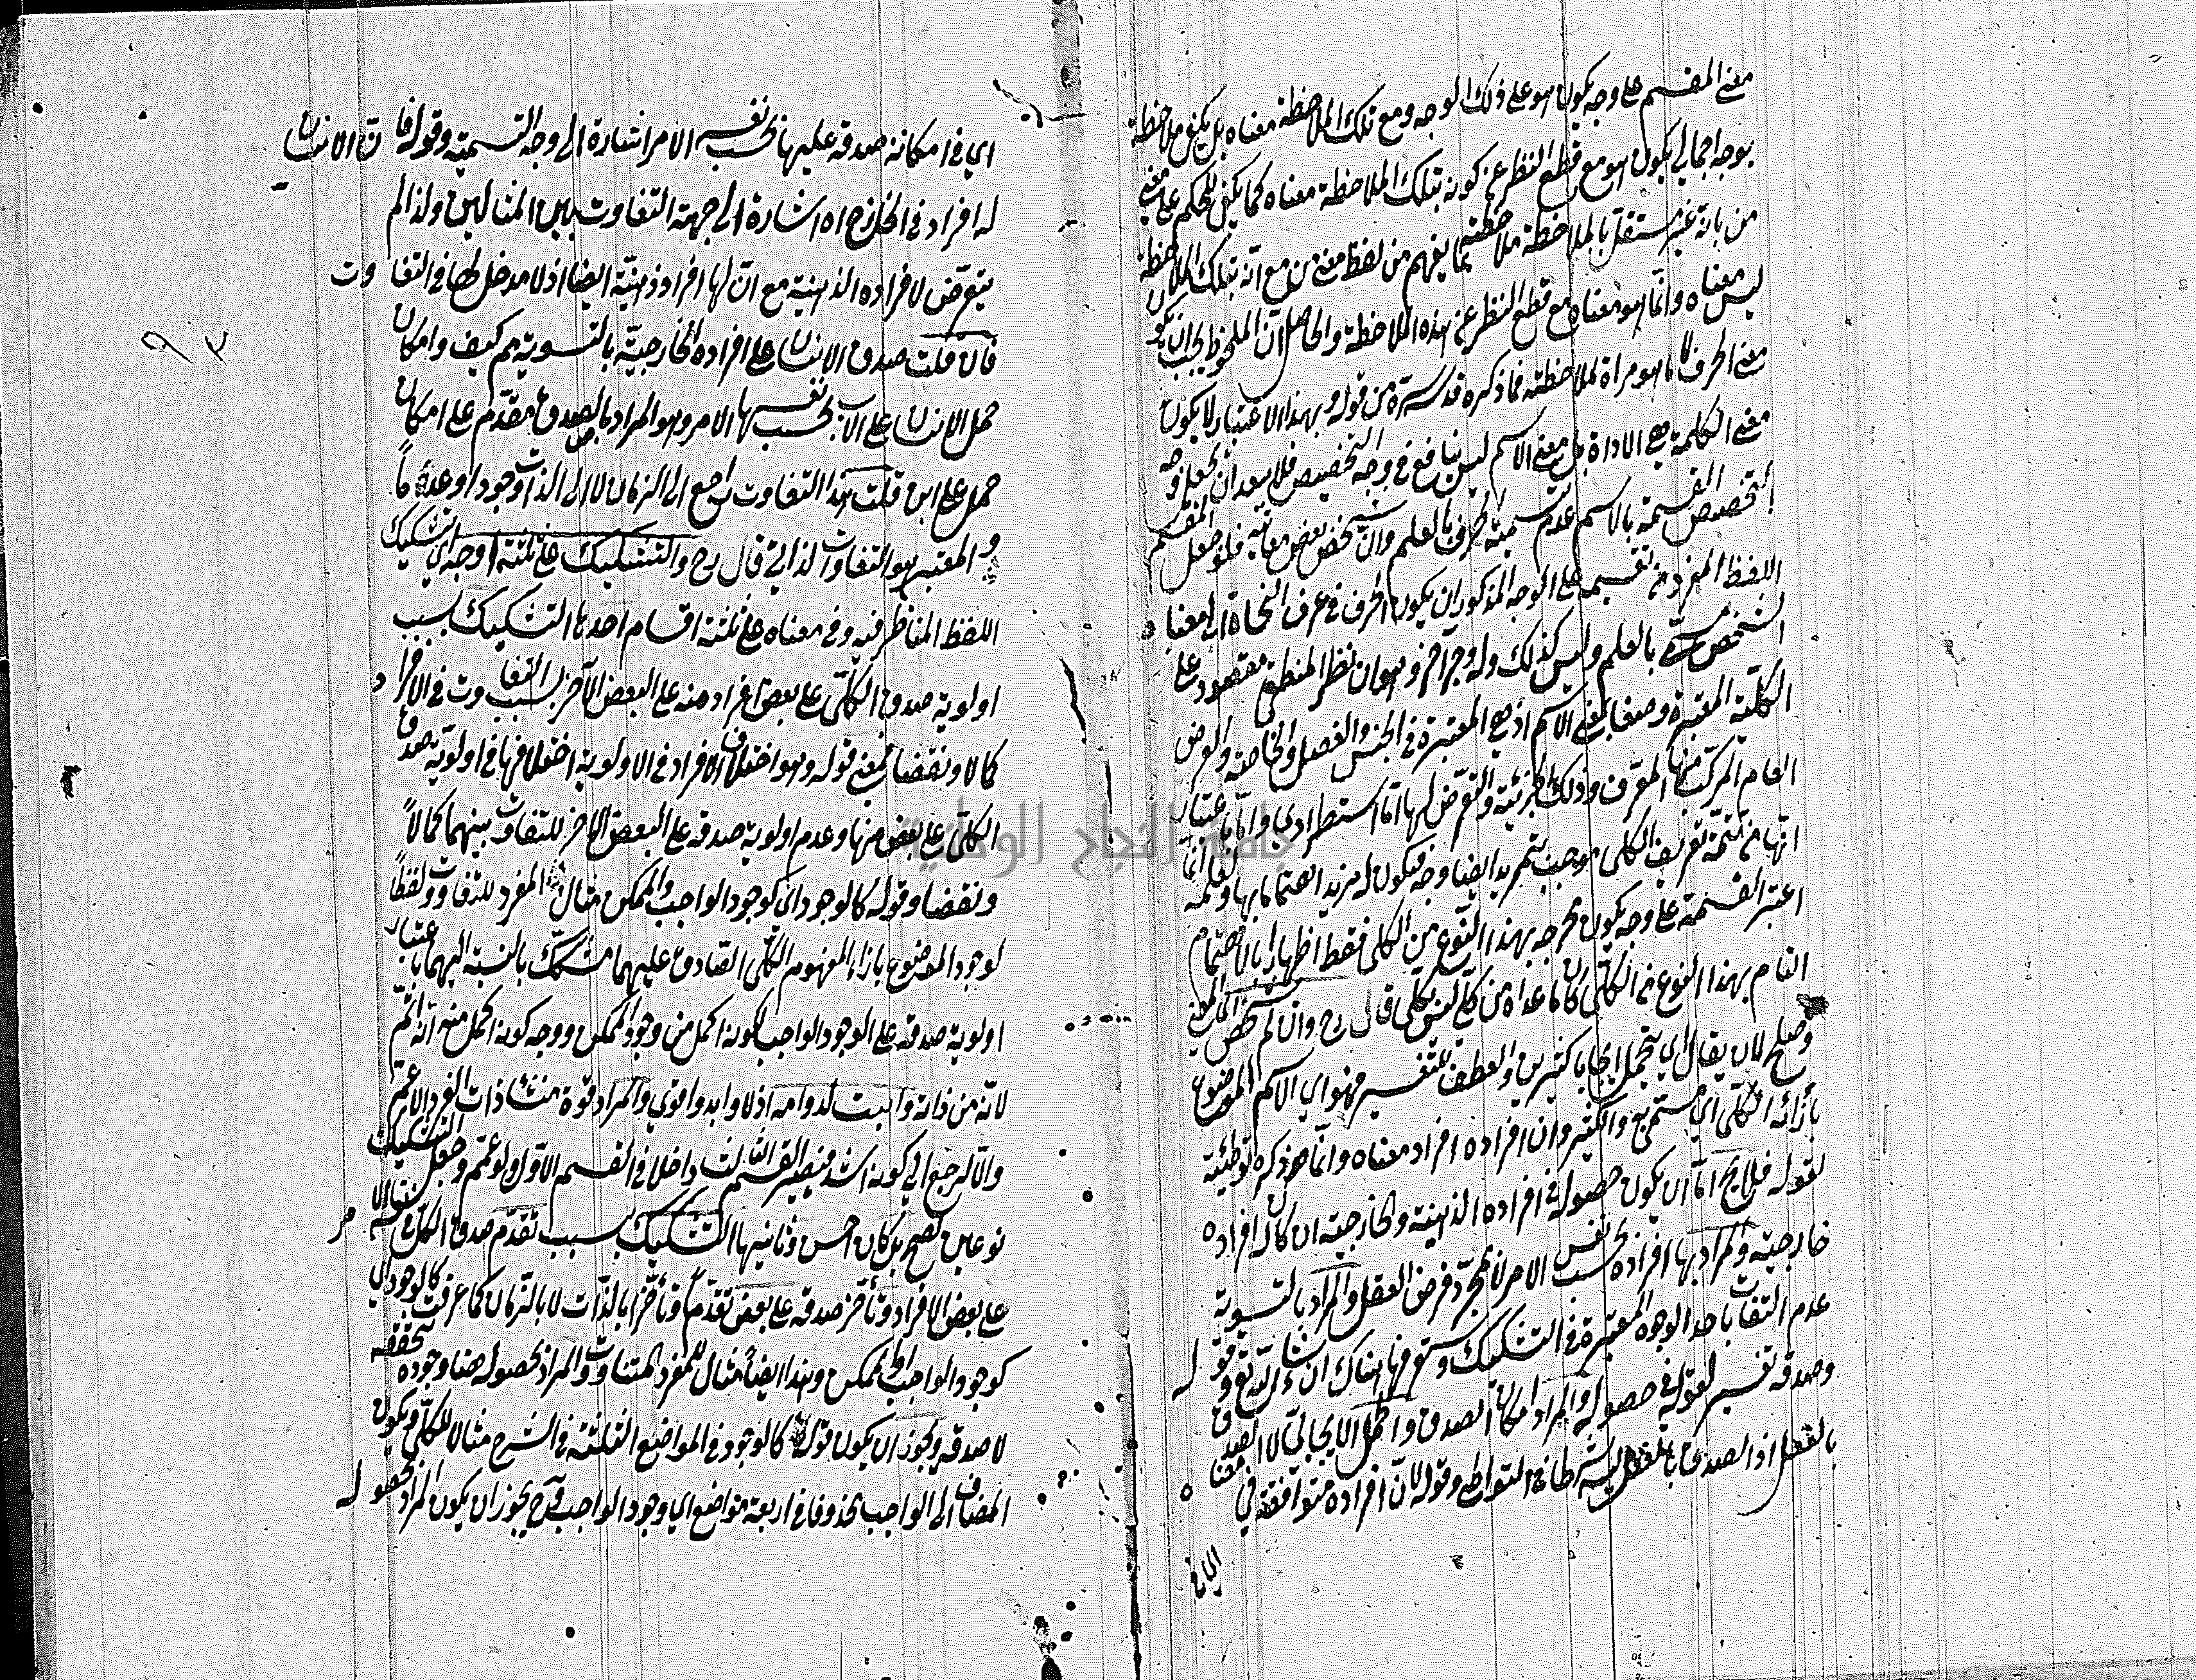 معنى المقسم على وجه يكون هو على ذلك الوجه ومع تلك الملاحظة معناه بل يكفي ملاحظة
بوجه اجمالي يكون هو مع قطع النظر عن كونه بتلك الملاحظة معناه كما يكفي للحكم على معنى
من بانه غير مستقل بالملاحظة ملاحظته بما يفهم من لفظ معنى من مع انه بتلك الملاحظة
ليس معناه وانما هو معناه مع قطع النظر عن هذه الملاحظة والحاصل ان الملحوظ يجب ان يكون
معنى الحرف لا ما هو مراة لملاحظته فما ذكره قدس سره من قوله وبهذا الاعتبار لا يكون
معنى الكلمة هي الاداة بل معنى الاسم ليس بنافع في وجه التخصيص فلا يبعد ان يجعل وجه
تخصيص القسمة بالاسم عدم تسمية الحرف بالعلم وان تشخص بعض معانيه فلو جعل المقسم
اللفظ المفرد في تقسيمه على الوجه المذكور ان يكون الحرف في عرف النحاة اي لمعنا
الشخص مسمى بالعلم وليس كذلك وله وجه آخر وهو ان نظر المنطقي مقصود على
الكلية المعتبرة وصفا لمعنى الاسم اذ هي المعتبرة في الجنس والفصل والخاصة والعرض
العام المركب منها المعرف وذلك الجزئية والتعرض لها اما استطرادي واما باعتبار
انها من تتمة تعريف الكلي موجب تمريد ايضا وجه فيكون له مزيد اهتمام بها وثمة
اعتبر القسمة على وجه يكون مخرجه بهذا النوع من الكلي فقط اظهارا بالاهتمام
التام بهذا النوع من الكلي كان ما عداه من كلي ليس بكلي قال رح وان لم يشخص
وصلح لان يقال اي يحمل ايجابا كثيرين والعطف للتفسير فهو اي الاسم الموضوع
بازائه الكلي اي مستمى والكثيرون افراده افراد معناه وانما ذكره توطئة
لقوله فلا يخ اما ان يكون حصوله في افراده الذهنية والخارجية ان كان له افراده
خارجية والمراد بها افراده بحسب نفس الامر لا بمجرد فرض العقل والمراد بالتسوية
عدم التفات باحد الوجوه المعتبرة في التشكيك وستعرفها هناك ان شاء الله تع وقوله
وصدقه تفسير لقوله في حصوله والمراد امكان الصدق والحمل الايجابي لا الصدق
بالفعل اذ الصدق بالفعل ليس شرطا في التواطي وقوله لان افراده متوافقة في معناه
اي في امكانه صدقه عليها بحسب نفس الامر اشارة الى وجه التسمية وقوله فان الانسان
له افراد في الخارج اه اشارة الى جهة التفاوت بين المثالين ولذا لم
يتعرض لافراده الذهنية مع ان لها افراد ذهنية ايضا اذ لا مدخل لها في التفاوت
فان قلت صدق الانسان على افراده الخارجية بالتسوية مم كيف وامكان
حمل الانسان على الاب بحسب نفس الامر وهو المراد بالصدق مقدم على امكان
حمل على ابن قلت هذا التفاوت راجع الى الزمان لا الى الذات وجودا وعدما
والمعتبر هو التفاوت الذاتي قال رح والتشكيك على ثلثة اوجه اي تشكيك
اللفظ المناظر فيه وفي معناه على ثلثة اقسام احدها التشكيك بسبب
اولوية صدق الكلي على بعض افراد منه على البعض الآخر بسبب التفاوت في الافراد
كمالا ونقصا فمعنى قوله وهو اختلاف الافراد في الاولوية اختلافها في اولوية صدق
الكلي على بعض منها وعدم اولوية صدقه على البعض الآخر للتفاوت بينهما كمالا
ونقصا وقوله كالوجود اي كوجود الواجب والممكن مثال المفرد للتفاوت ولفظا
لوجود الموضوع بازاء المفهوم الكلي الصادق عليهما مشكك بالنسبة اليهما باعتبار
اولوية صدقه على الوجود الواجب لكونه اكمل من وجود الممكن ووجه كونه اكمل منه انه اتم
لانه من ذاته واثبت لدوامه اذلا وابدا واقوى والمراد قوة منشا ذات الفرد الاعم
والا لرجع الى كونه اشد فيصير القسم الثالث داخلا في القسم الاول ولو عمم وجعل التشكيك
نوعين لصح بل كان احسن وثانيها التشكيك بسبب تقدم صدق الكلي
على بعض الافراد وتأخر صدقه على بعض تقدما وتأخرا بالذات لا بالزمان كما عرفت كالوجود اي
كوجود الواجب والممكن وهذا ايضا مثال للمفرد المتفاوت والمراد بحصوله هنا وجوده تحققه
لا صدقه ويجوز ان يكون قوله كالوجود في المواضع الثلثة في الشرح مثالا للكلي ويكون
المضاف الى الواجب محذوفا في اربعة مواضع اي وجود الواجب فح يجوز ان يكون المراد بحصوله